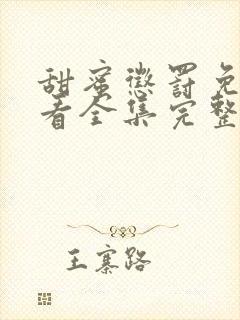 甜蜜懲罰免
看全集完整
王寨路